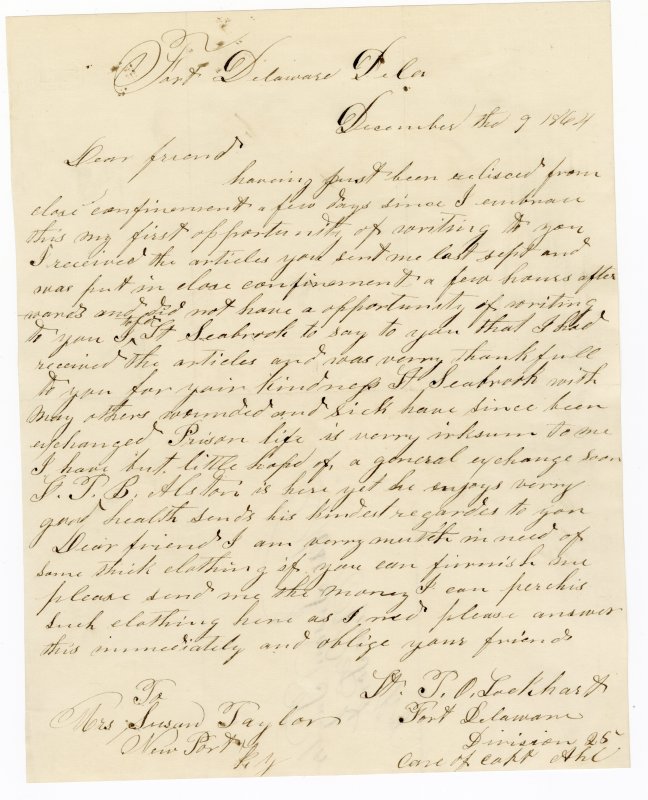 Fort Delaware Dela
December the 9 1864
Dear friend
having just been relised from
close confinement a few days since I embrace
this my first opportunity of writing to you
I received the articles you sent me last sept and
was put in close confinement a few hours after
wards and did not have a opportunity of writing
to you I Lt Seabrook to say to you that I had
received the articles and was verry thankfull
to you for your kindness Lt Seabrook with
May others wounded and sick have since been
exchanged Prison life is verry irksum to me
I have but little hope of a general exchange soon
Alston is here yet he enjoys verry
good health sends his kindes regardes to you
Dear friend I am verry mutch in need of
some thick clothing if you can firrnish me
please send me the money I can perchis
such clothing here as I need please answer
this immediately and oblige your friend
Lt. T. O. Lockhart
To
Mrs Susan Taylor
Fort Delaware
New Port
Division 25
Ky
Care of Capt Ahl